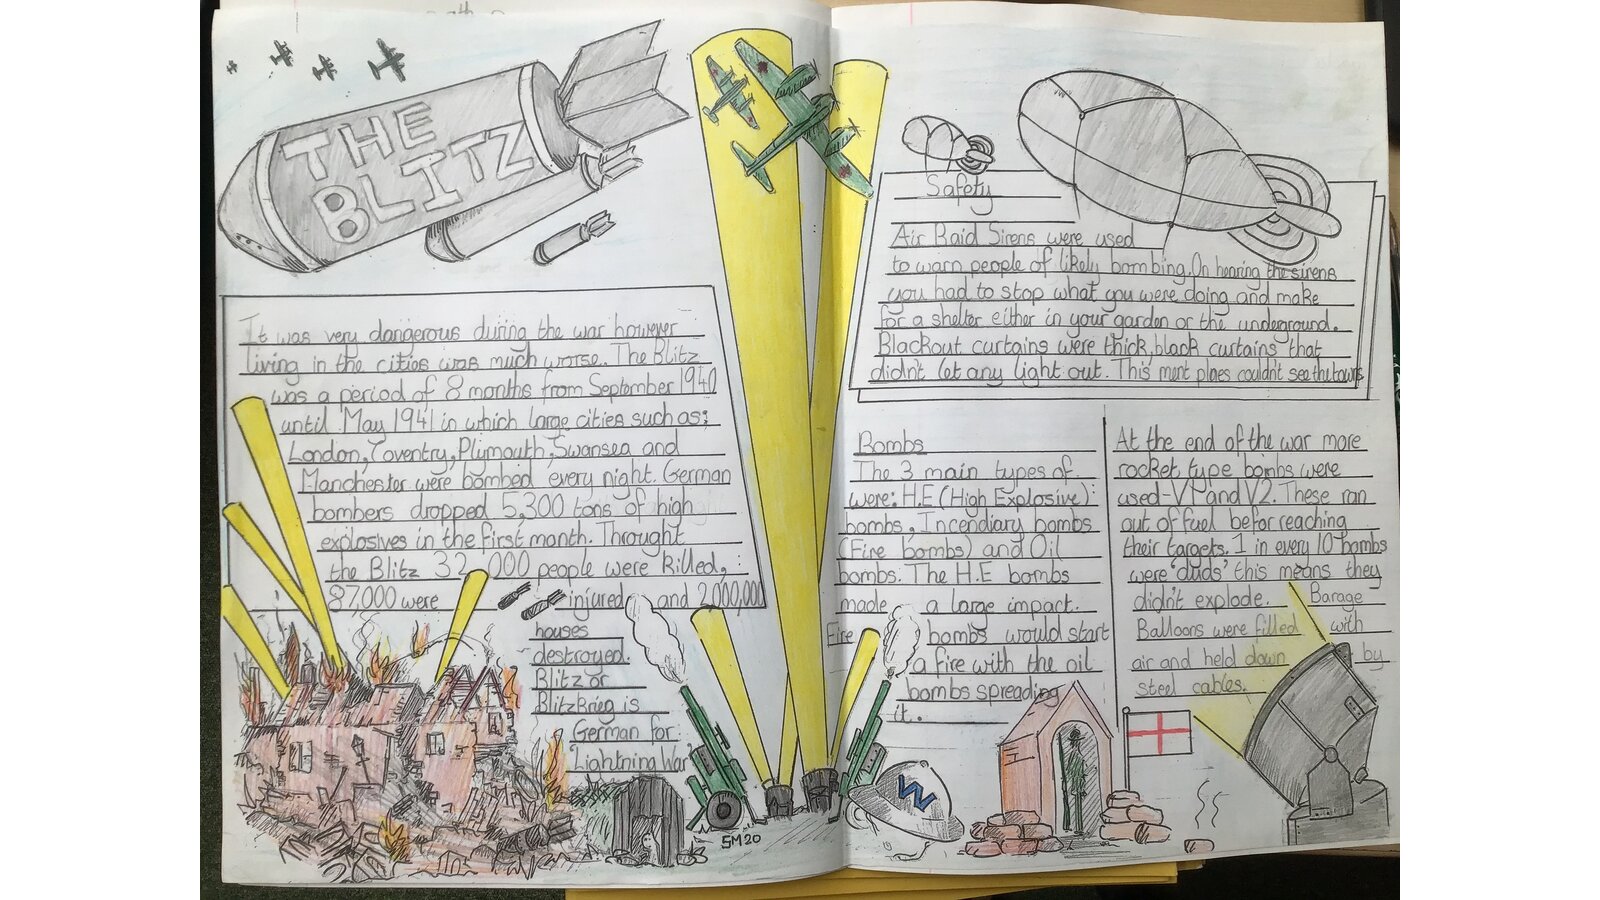 THE
BLITZ
It was very dangerous during the war however
living in the cities was much worse. The Blitz
was a period of 8 months from September 1940
until May 1941 in which large cities such as;
London, Coventry, Plymouth, Swansea and
Manchester were bombed every night. German
bombers dropped 5,300 tons of high
explosives in the first month. Throught
the Blitz 32,000 people were killed,
87,000 were injured and 2,000,000
houses
destroyed.
Blitz or
BlitzKrieg is
German for
Lightning War
SM20
Safety
Air Raid Sirens were used
to warn people of likely bombing. On hearing the sirens
you had to stop what you were doing and make
for a shelter either in your garden or the underground.
Blackout curtains were thick, black curtains that
didn't let any light out. This ment planes couldn't see the towns
Bombs
The 3 main types of
were: H.E (High Explosive)
bombs, Incendiary bombs
(Fire bombs) and Oil
bombs. The H.E bombs
made a large impact.
Fire bombs would start
a fire with the oil
bombs spreading
it.
At the end of the war more
rocket type bombs were
used-V1 and V2. These ran
out of fuel befor reaching
their targets. 1 in every 10 bombs
were 'duds' this means they
didn't explode. Barage
Balloons were filled with
air and held down by
steel cables.
W